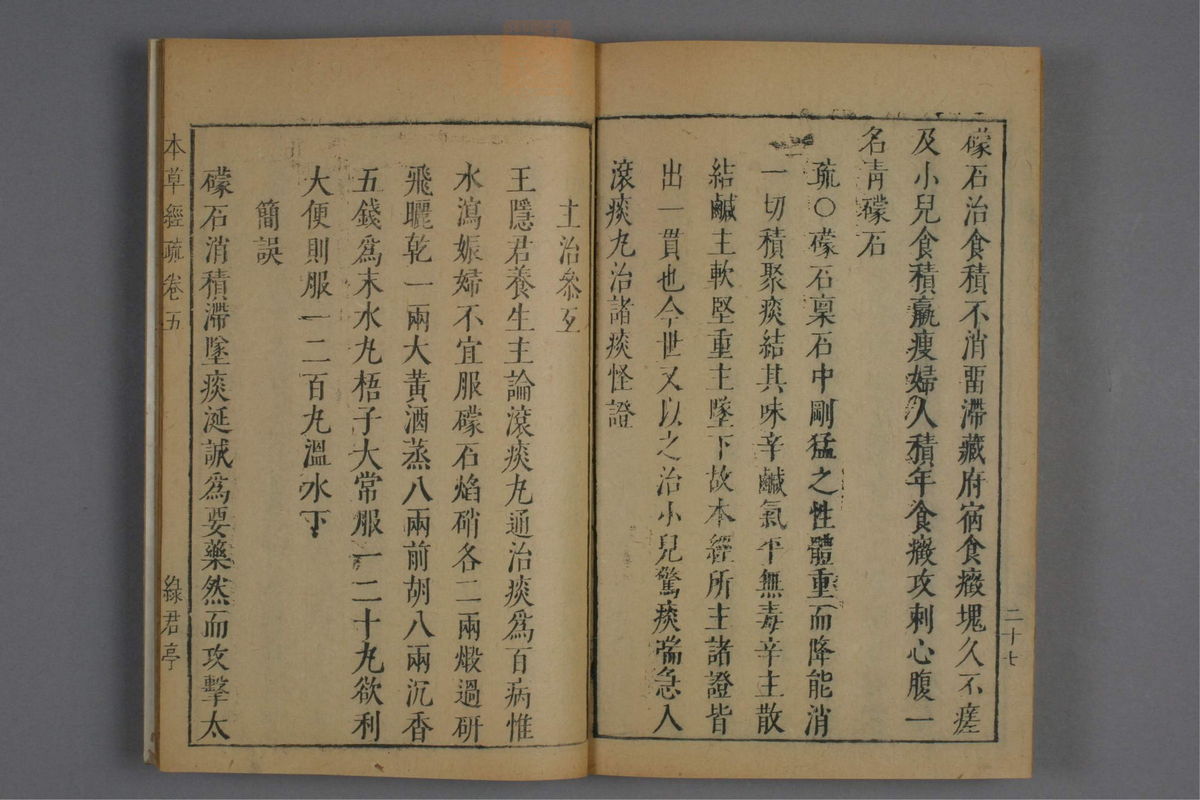 礞石治食積不消畱滯藏府宿食癥塊久不瘥
及小兒食積羸瘦婦人積年食癥攻刺心腹一
名靑礞石
疏○礞石稟石中剛猛之性體重而降能消
一切積聚痰結其味辛鹹氣平無毒辛主散
結鹹主軟堅重主墜下故本經所主諸證皆
出一貫也今世又以之治小兒驚痰喘急入
滾痰丸治諸痰怪證
二十七
主治叅互
王隱君養生主論滾痰丸通治痰爲百病惟
水瀉娠婦不宜服礞石焰硝各二兩煅過研
飛曬乾一兩大黃酒蒸八兩前胡八兩沉香
五錢爲末水丸梧子大常服一二十丸欲利
大便則服一二百丸溫水下
簡誤
礞石消積滯墜痰涎誠爲要藥然而攻擊太
本草經疏卷五
綠君亭